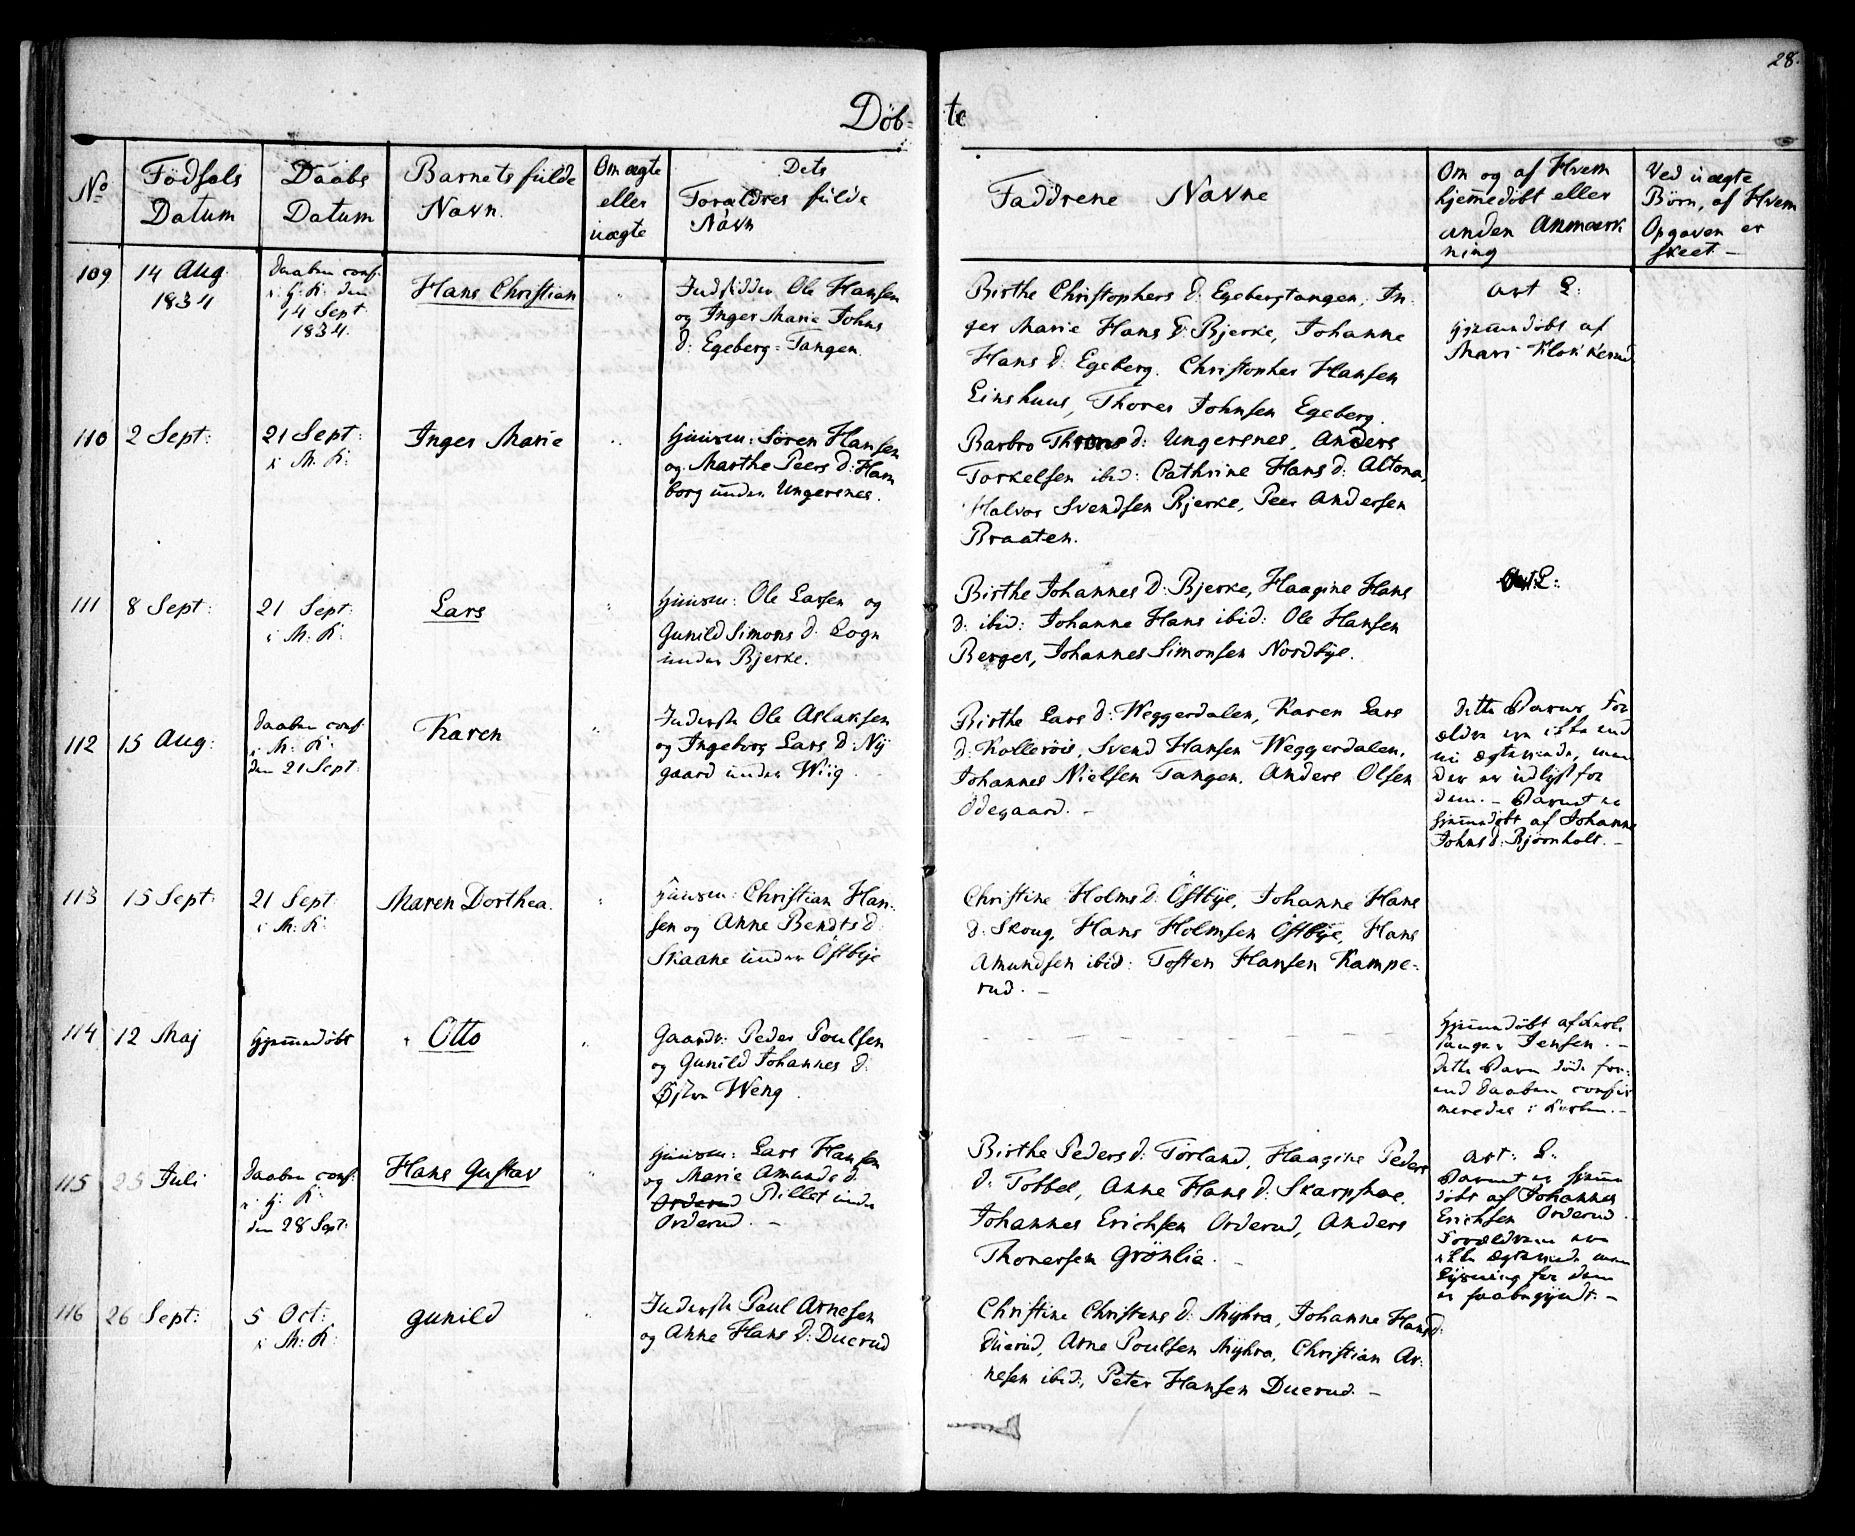 28.
Døb- te
No
Födsels Datum
Daabs Datum
Barnets fulde Navn.
Om ægte eller uægte
Dets Forældres fulde Navn
Faddrene Navne
Om og af Hvem hjemmedöbt eller anden Anmærkning
Ved uægte Börn, af Hvem Opgaven er skeet -
109
14 Aug. 1834
Daaben conf. i H. K. den 14 Sept 1834.
Hans Christian
Indsidder Ole Hansen
og Inger Marie Johns
d: Egeberg-Tangen.
Birthe Christophers d. Egebergtangen, In-
ger Marie Hans d: Bjerke, Johanne
Hans d. Egeberg. Christopher Hansen
Linshuus, Thores Johnsen Egeberg.
att L:
hjemmdöbt af
Mari Klokkerud
110
2 Sept:
21 Sept: i M. K:
Inger Marie
Huusm: Sören Hansen
og Marthe Peers d: Ham
borg under Ungersnes.
Barbro Throns d: Ungersnes, Anders
Torkelsen ibid: Cathrine Hans d: Altona,
Halvor Svendsen Bjerke, Peer Andersen
Braaten.
111
8 Sept:
21 Sept: i M. K:
Lars
Huusm: Ole Larsen og
Gunild Simons d. Logn
under Bjerke.
Birthe Johannes d. Bjerke, Haagine Hans
d. ibid: Johanne Hans ibid: Ole Hansen
Berger, Johannes Simonsen Nordbÿe.
112
15 Aug:
Daaben conf. i M. K. den 21 Sept:
Karen
Inderste Ole Aslaksen
og Ingeborg Lars d: Nÿ
gaard under Wiig.
Birthe Lars d: Weggerdalen, Karen Lars
d: Kolleröis, Svend Hansen Weggerdalen.
Johannes Nielsen Tangen. Anders Olsen
Ödegaard. -
dette Barns For
ældre ere ikke end
nu Ægteviede, men
der er udlÿst for
dem. - Barnet er
hjemmdöbt af Johanne
Johns d: Bjørnholt. -
113
15 Sept:
21 Sept i M: K:
Maren Dorthea.
Huusm: Christian Han-
sen og Anne Bendts d:
Skaane under Östbÿe
Christine Holms d. Östbÿe, Johanne Hans
d: Skoug, Hans Holmsen Östbÿe, Hans
Amundsen ibid: Tosten Hansen Kampe-
rud. -
114
12 Maj
hjemmdöbt
Otto
Gaardr: Peder Poulsen
og Gunild Johannes d:
Østre Weng.
hjemmdöbt af
Jensen. -
dette Barn döde for-
end Daaben confir
meredes i Kirken. -
115
25 Juli
Daaben conf. i H. K: den 28 Sept:
Hans Gustav
Huusm: Lars Hansen
og Marie Amunds d:
Orderud Pillet under
Orderud. -
Birthe Peders d: Torland, Haagine Peders
d: Tobbel, Anne Hans d: Skarpsnoe.
Johannes Erichsen Orderud, Anders
Thoresen Grönlie. -
att: L:
Barnet er hjemm
döbt af Johannes
Erichsen Orderud.
Forældrene ere
ikke Ægteviede men
Lÿsning for dem
er paabegyndt. -
116
26 Sept:
5 Oct: i M: K:
Gunild
Inderste Paul Arnesen
og Anne Hans d: Duerud
Christine Christens d: Mÿhra, Johanne Hans d:
Duerud, Arne Poulsen Mÿhra, Christian Ar-
nesen ibid:, Peter Hansen Duerud. -